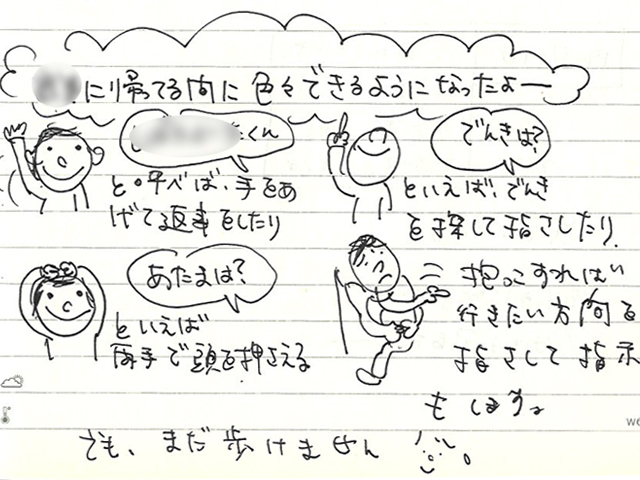 に帰ってる間に色々できるようになったよー
くん
と呼べば、手をあ
げてる返事をしたり
でんきは?
といえば、でんき
を探して指さしたり、
あたまは?
といえば
両手で頭を押さえる
抱っこすれば
行きたい方向を
指さして指示
も します。
でも、まだ歩けません
we